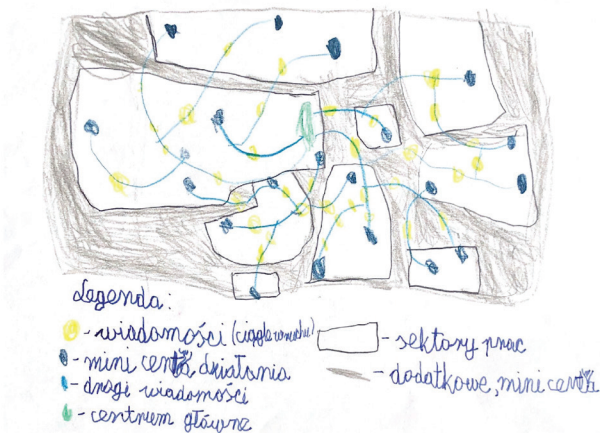 Legenda:
- wiadomości (ciągle w ruchu)
- mini centra działania
- drogi wiadomości
- centrum główne
- sektory prac
- dodatkowe, mini centra